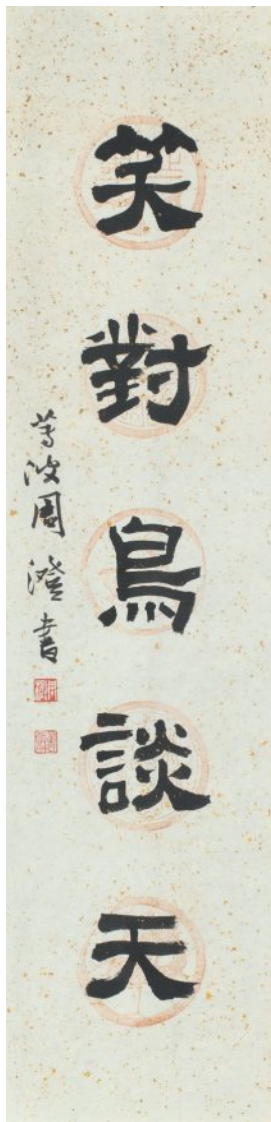 笑對鳥談天
蓴波周澄書